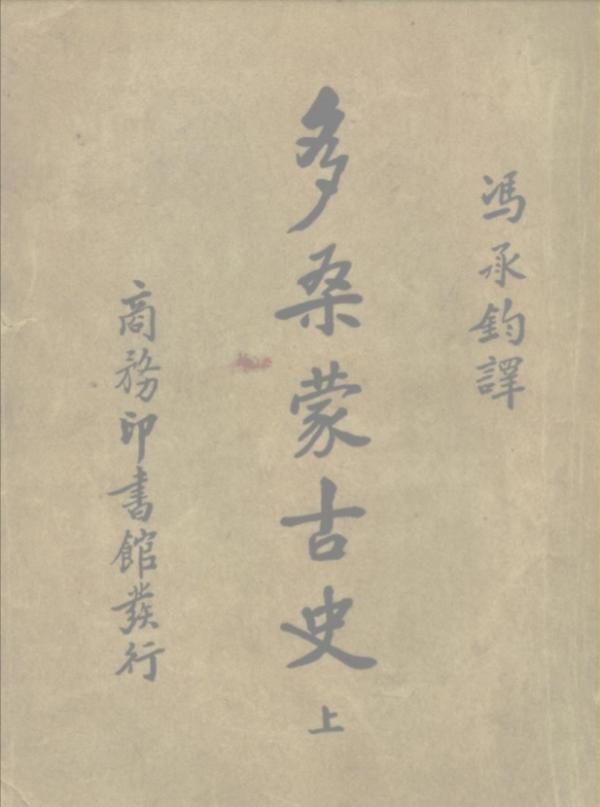 馮承鈞譯
多桑蒙古史 上
商務印書館發行